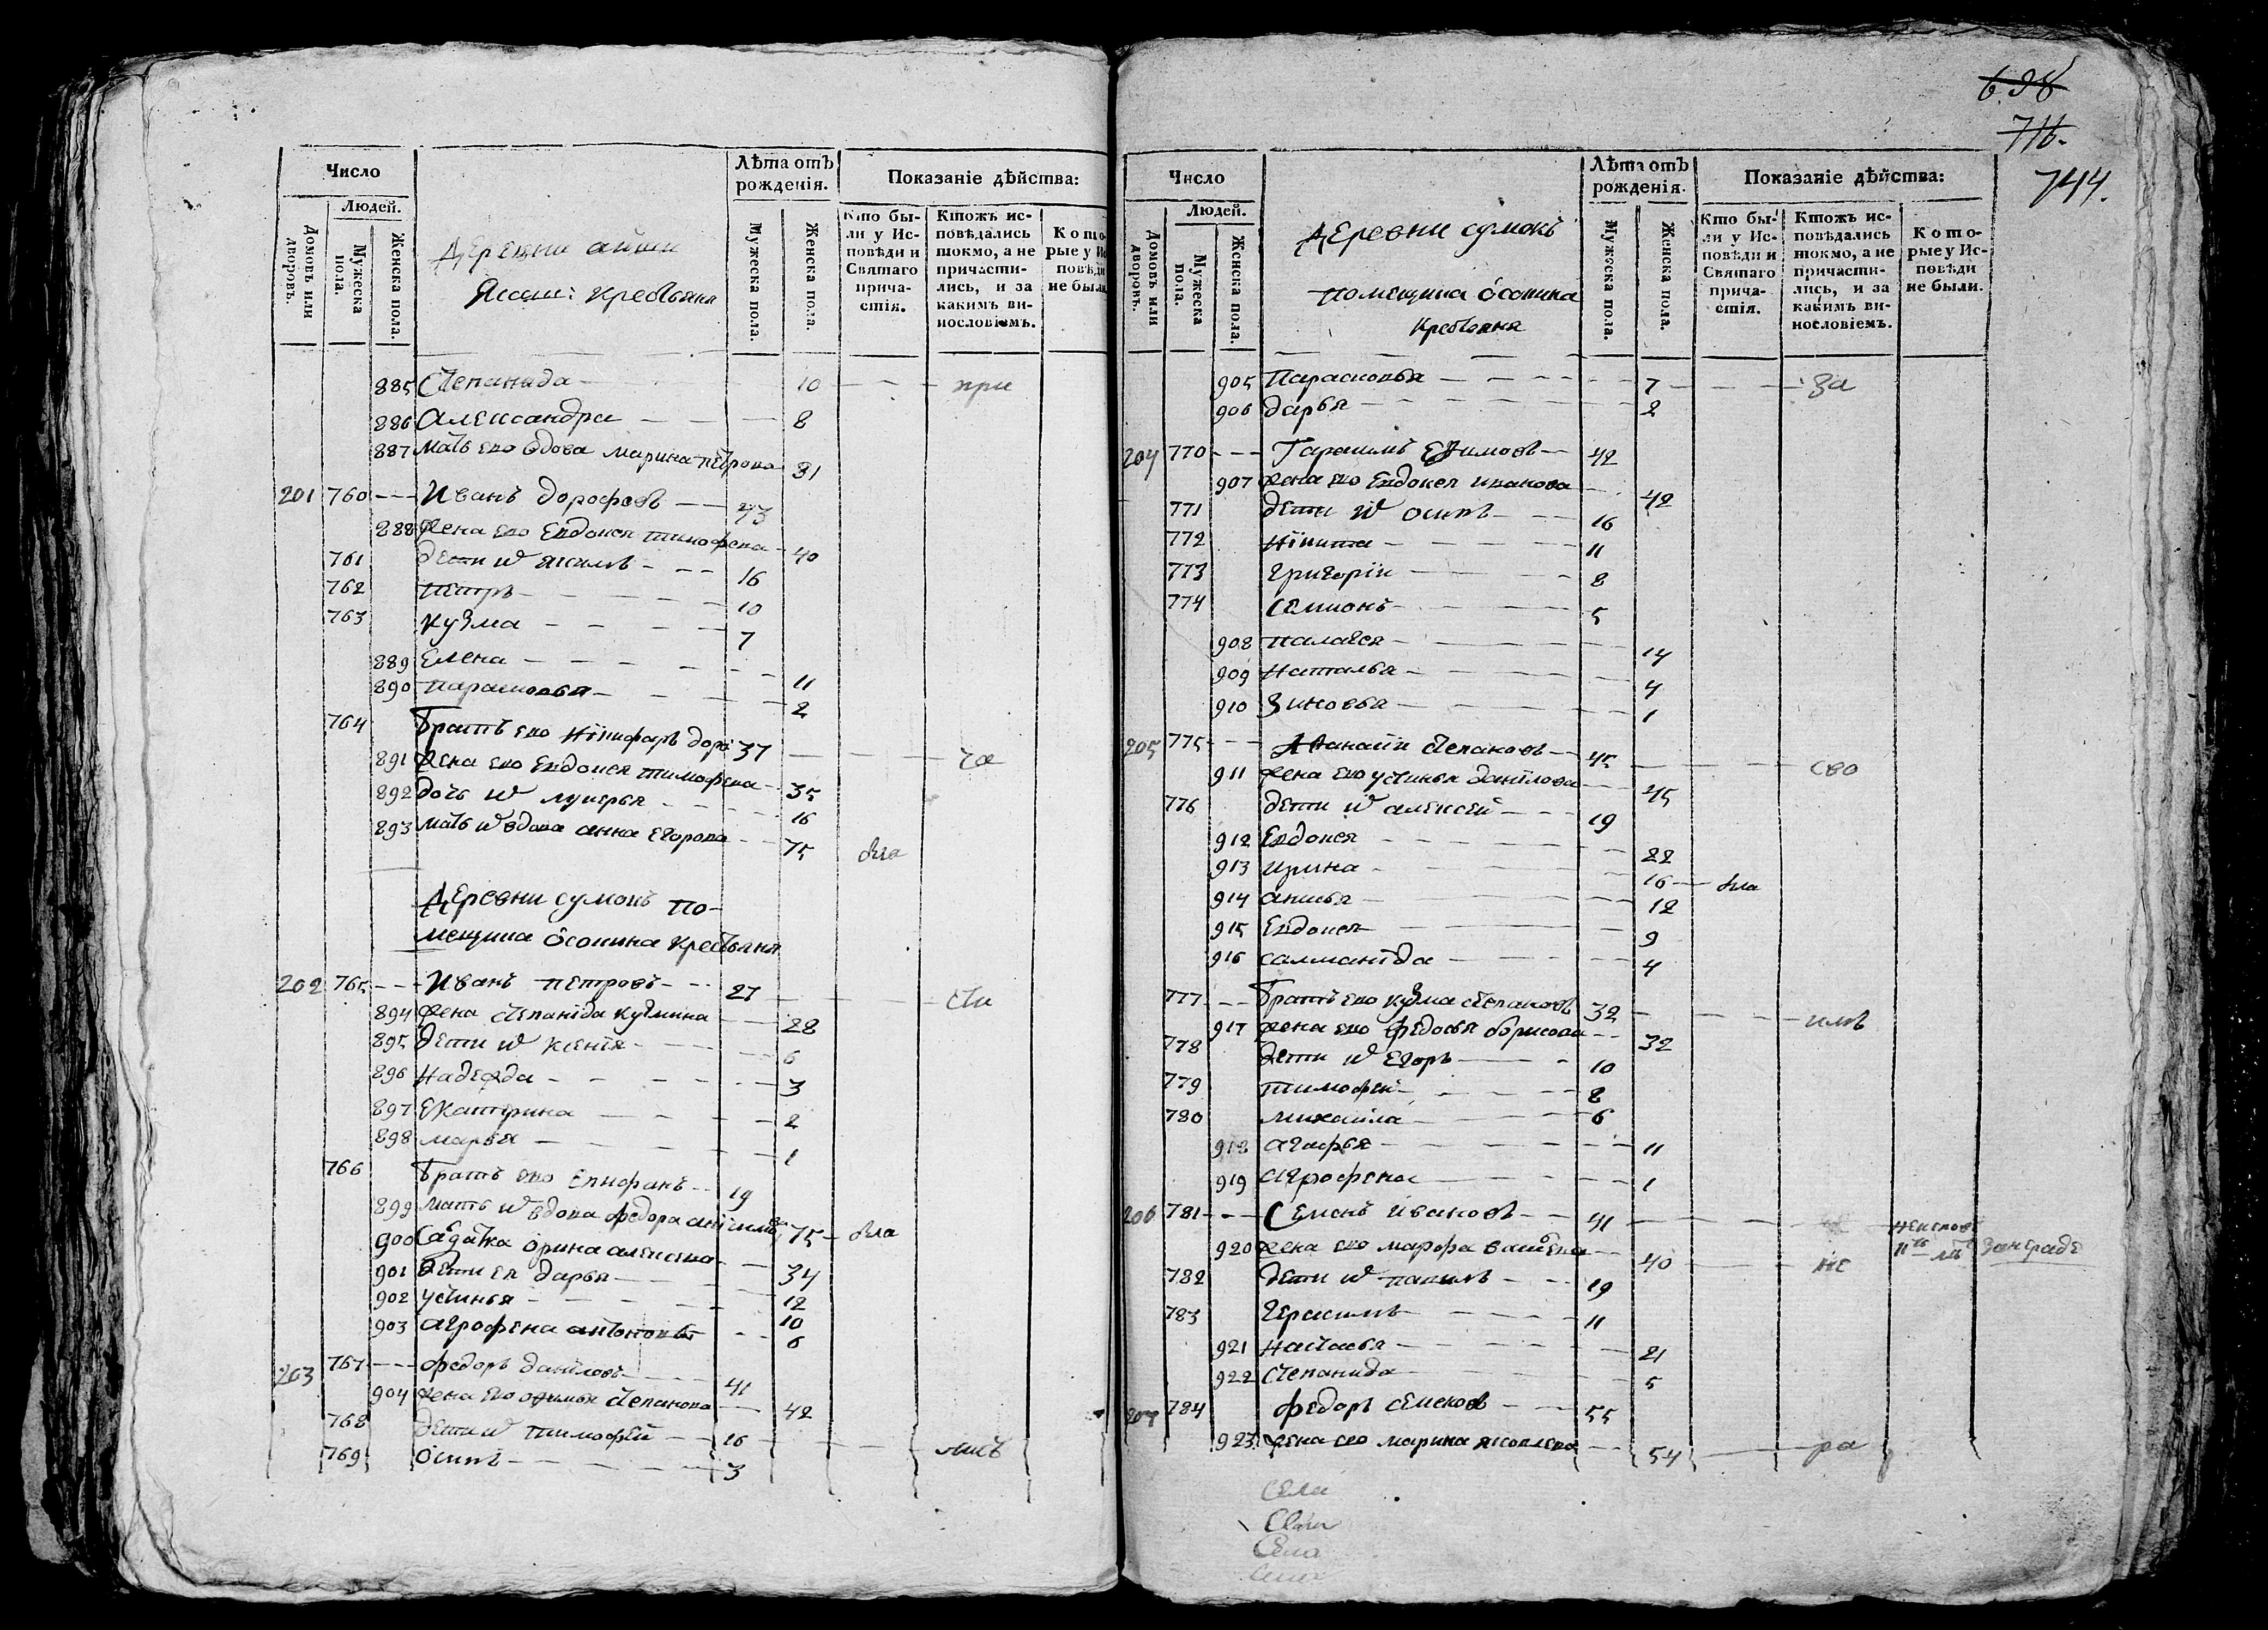 Число
Людей.
Домовъ или дворовъ.
Мужеска пола.
Женска пола.
Деревни
крестьяня
Лѣта отъ рожденія.
Мужеска пола.
Женска пола.
Показаніе дѣйства:
Кто бы-
ли у Ис-
повѣди и
Святаго
прича-
стія.
Ктожъ ис-
повѣдались
токмо, а не
причасти-
лись, и за
какимъ ви-
нословіемъ.
Кото-
рые у Ис
повѣди
не были
885 Степанида 10 при
886 Александра 8
887 мать ево вдова марина петрова 81
201 760 Иванъ дорофеевъ 43
888 жена ево Евдокея тимофеева 40
761 дети ѿ якимъ 16
762 петръ 10
763 кузма 7
889 Елена 11
890 парасковья 2
764 братъ ево Нікифаръ доро 37 ча
891 жена ево Евдокея тимофеева 35
892 дочь ѿ лукерья 16
893 мать ѿ вдова анна Егорова 75 была
Деревни сумокъ по-
мещика Осокина крестьяня
202 765 Иванъ петровъ 27 сти
894 жена степаніда кузмина 28
895 дети ѿ ксенія 6
896 надежда 3
897 Екатерина 2
898 марья 1
766 братъ ево Епифанъ 19
899 мать ѿ вдова федора 75 была
900 орина алексеева 34
901 дети ея дарья 12
902 устинья 10
903 агрофена 6
203 767 федоръ даніловъ 41
904 жена ево степанова 42
768 дети ѿ тимофей 16 лись
769 осипъ 3
698
716.
744.
Число
Людей.
Домовъ или дворовъ.
Мужеска пола.
Женска пола.
Деревни сумокъ
помещика Осокина
крестьяня
Лѣта отъ рожденія.
Мужеска пола.
Женска пола.
Показаніе дѣйства:
Кто бы-
ли у Ис-
повѣди и
Святаго
прича-
стія.
Ктожъ ис-
повѣдались
токмо, а не
причасти-
лись, и за
какимъ ви-
нословіемъ.
Кото-
рые у Ис-
повѣди
не были.
905 Парасковья 7 за
906 дарья 2
204 770 42
907 жена ево Евдокея иванова 42
771 дети ѿ осипъ 16
772 нікита 11
773 григорій 8
774 семионъ 5
908 палагея 14
909 наталья 4
910 зиновья 1
205 775 Афанасій степановъ 45 сво
911 жена ево устинья данілова 45
776 дети ѿ алексей 19
912 Евдокея 22
913 ирина 16 была
914 анисья 12
915 Евдокея 9
916 4
777 братъ ево кузма степановъ 32 имъ
917 жена ево федосья борисова 32
778 дети ѿ Егоръ 10
779 тимофей 8
780 михаила 6
918 агафья 11
919 агрофена 1
206 781 Семенъ ивановъ 41
920 жена ево марфа 40 не
782 дети ѿ 19
783 герасимъ 11
921 настасья 21
922 степанида 5
207 784 федоръ семеновъ 55
923 жена ево марина яковлева 54 ра